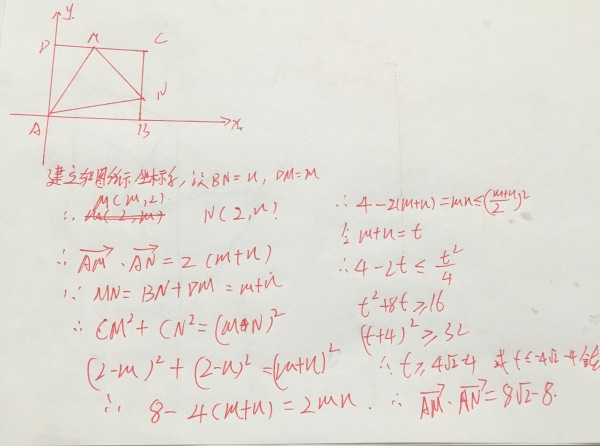 y
D M C
N
A B x
建立如图所示坐标系,设BN=n,DM=m
M(m,2)
∴ N(2,n)
∴ \overrightarrow{AM}·\overrightarrow{AN}=2(m+n)
∵ MN=BN+DM=m+n
∴ CM²+CN²=(m+n)²
(2-m)²+(2-n)²=(m+n)²
∴ 8-4(m+n)=2mn.
∴ 4-2(m+n)=mn≤(\frac{m+n}{2})²
令m+n=t
∴ 4-2t≤\frac{t²}{4}
t²+8t≥16
(t+4)²≥32
∴ t≥4√2-4 或t≤-4√2-4舍
∴ \overrightarrow{AM}·\overrightarrow{AN}=8√2-8.